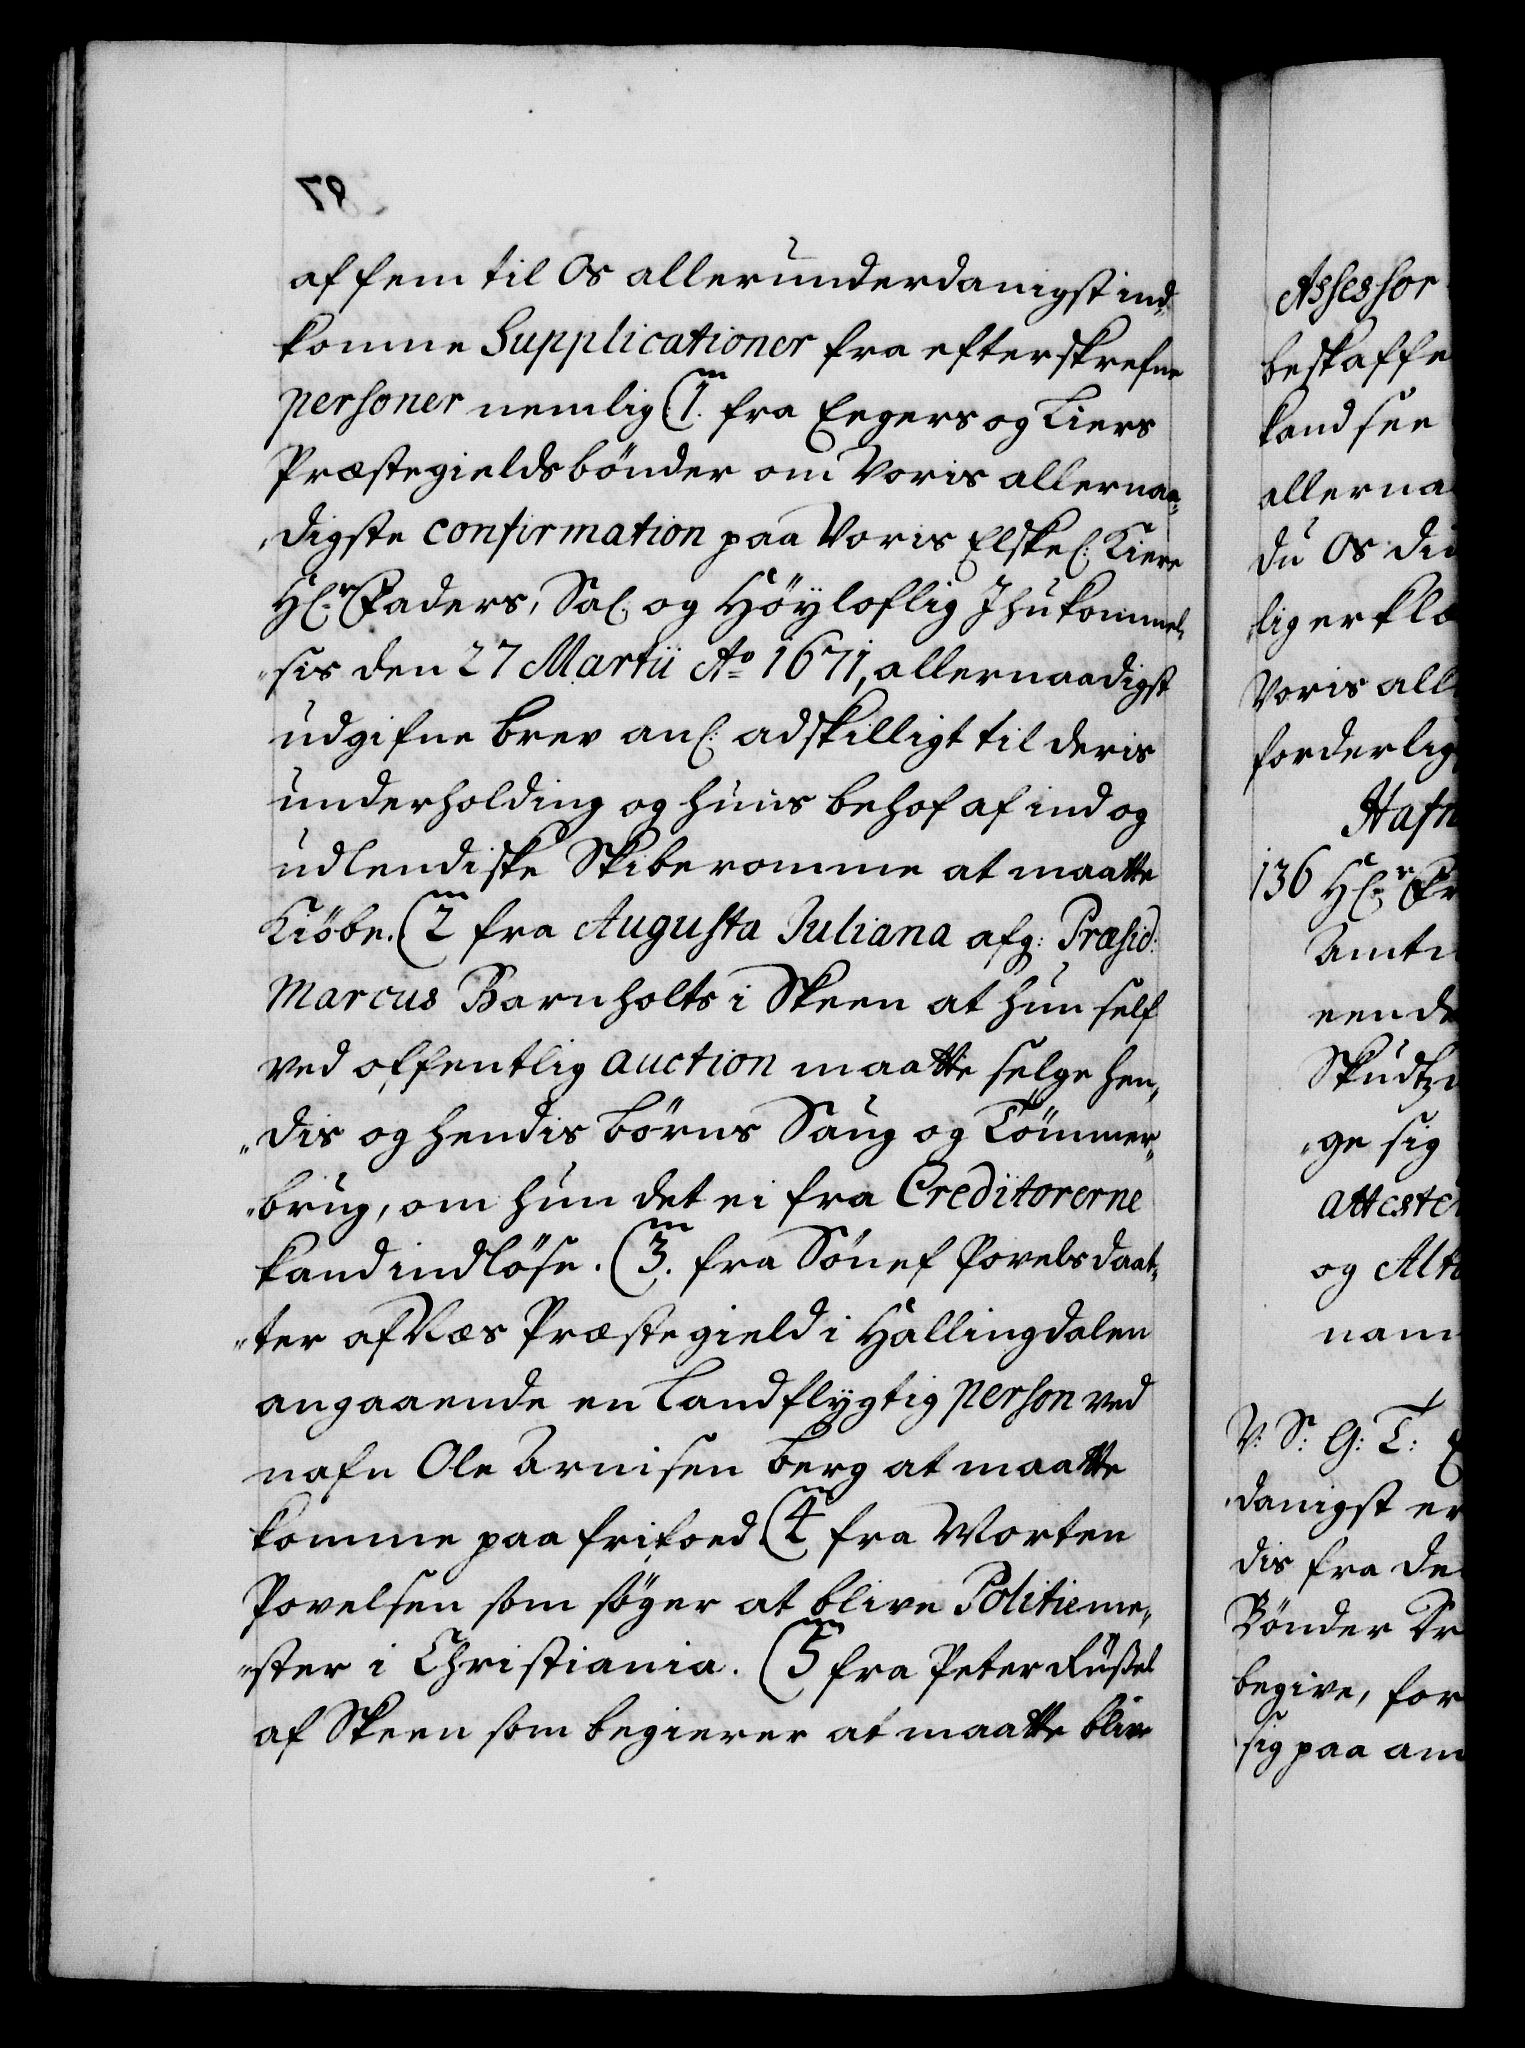 af fem til Os allerunderdanigst ind„
komne Supplicationer fra efterskrefne
personer nemlig: (1m. fra Eegers og Liers
Præstegields bönder om Voris allernaa„
„digste confirmation paa Voris Elskel: Kiere
Hl:r Faders, Sal. og Höyloflig Ihukommel„
„sis den 27 Martii Ao 1671, allernaadigst
udgifne brev anl: adskilligt til deris
underholding og huus behof af ind og
udlendiske Skiberomme at maatte
Kiöbe. (2m fra Augusta Juliana afg: Præsid:
Marcus Barnholts i Skeen at hun self
ved offentlig auction maatte selge hen„
„dis og hendis börns Saug og Tömmer„
„brug, om hun det ei fra Creditorerne
kand indlöse. (3m. fra Sönef Povelsdaat„
„ter af Næs Præstegield i Hallingdalen
angaaende en Landflygtig person ved
nafn Ole Arnisen berg at maatte
komme paa frifoed. (4m fra Morten
Povelsen som söger at blive Politieme„
„ster i Christiania. (5m fra Peter Rüßel
af Skeen som begierer at maatte blive
Assessor
beskaffe
kand see
allerna
du Os di
„lig erklæ
Voris all
forderlig
Hafn
136 Hl:r Fr
Amt
een de
Skudtz
„ge sig
attester
og Alt
nam
V: S: G: T:
„danigst er
dis fra de
Bönder
begive, for
sig paa am